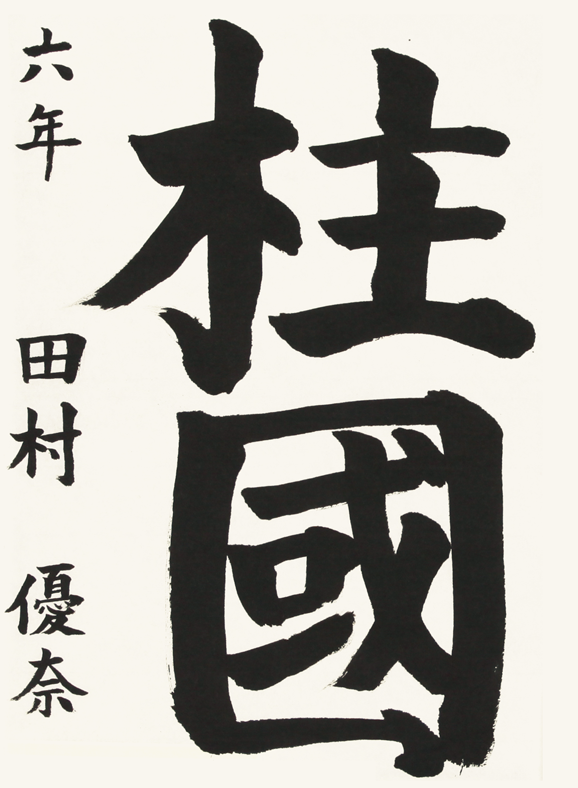 柱國
六年 田村 優奈